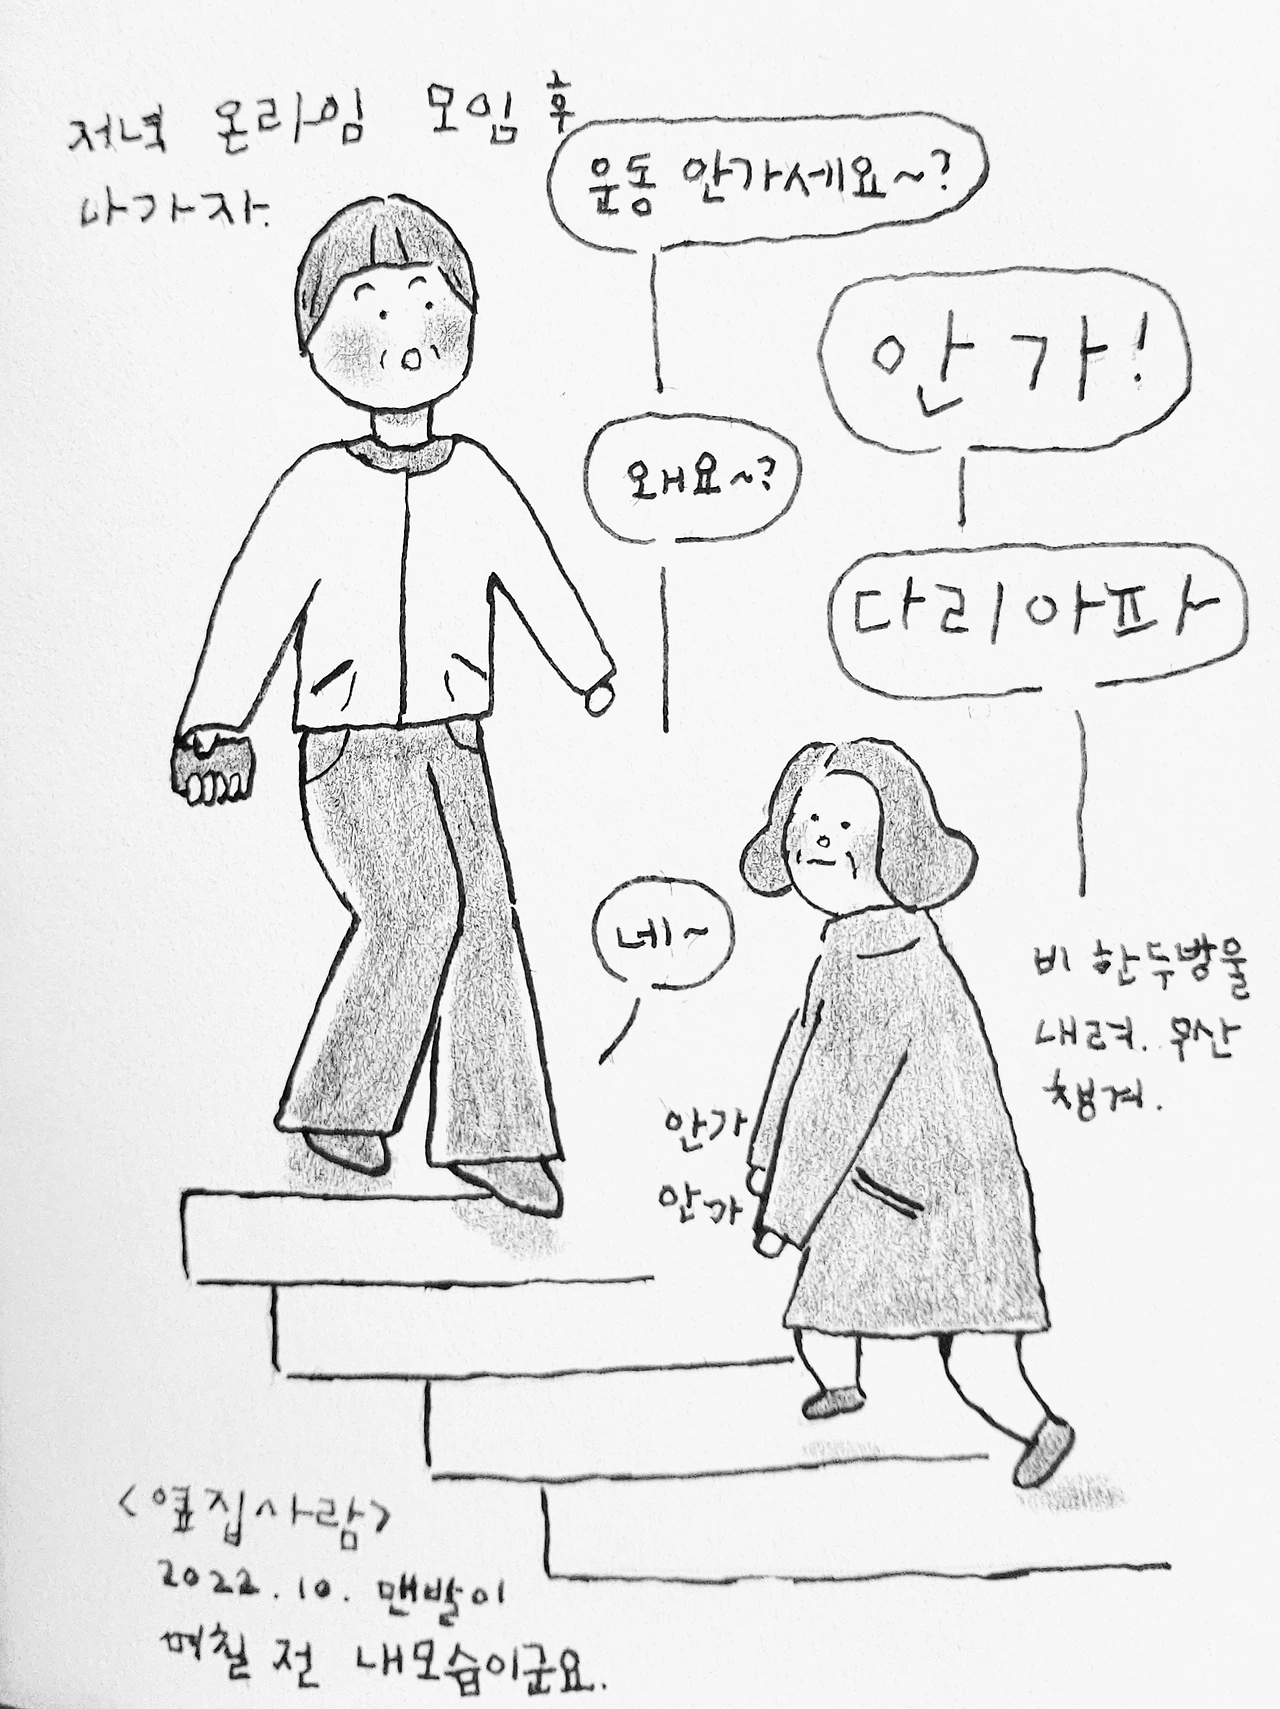 저녁 온라임 모임 후
나가자.
운동 안가세요~?
안 가!
왜요~?
다리 아파~
네~
비 한두방울
내려. 우산
챙겨.
안가
안가
<옆집사람>
2022.10. 맨발이
며칠 전 내모습이군요.